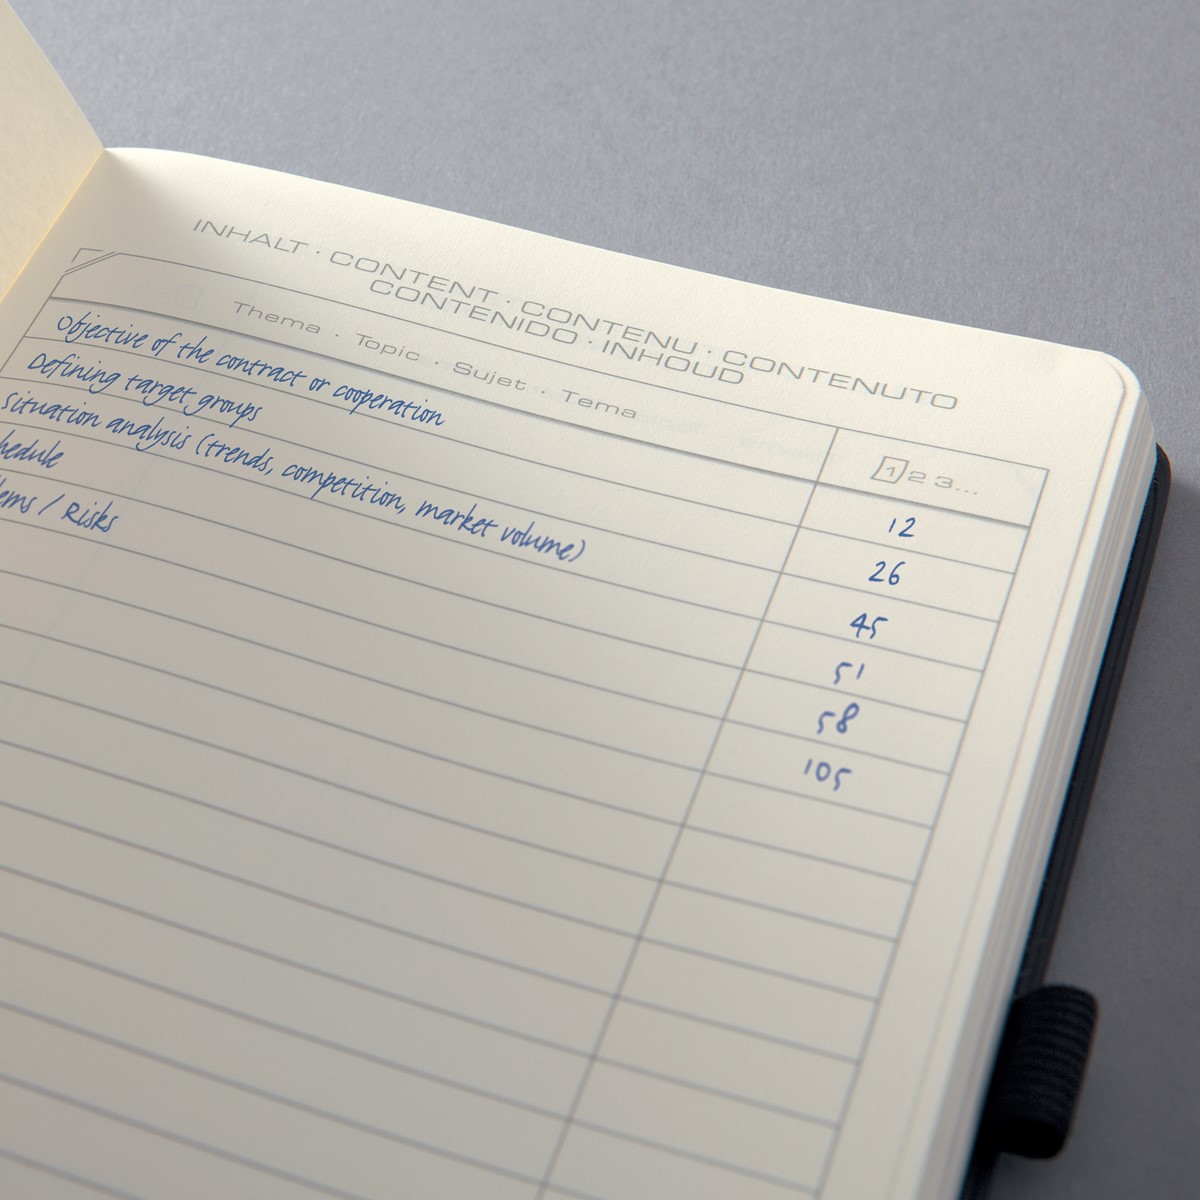 INHALT · CONTENT · CONTENU · CONTENUTO
CONTENIDO · INHOUD
Thema · Topic · Sujet · Tema 1 2 3...
Objective of the contract or cooperation 12
Defining target groups 26
Situation analysis (trends, competition, market volume) 45
hedule 51
lems / Risks 58
105